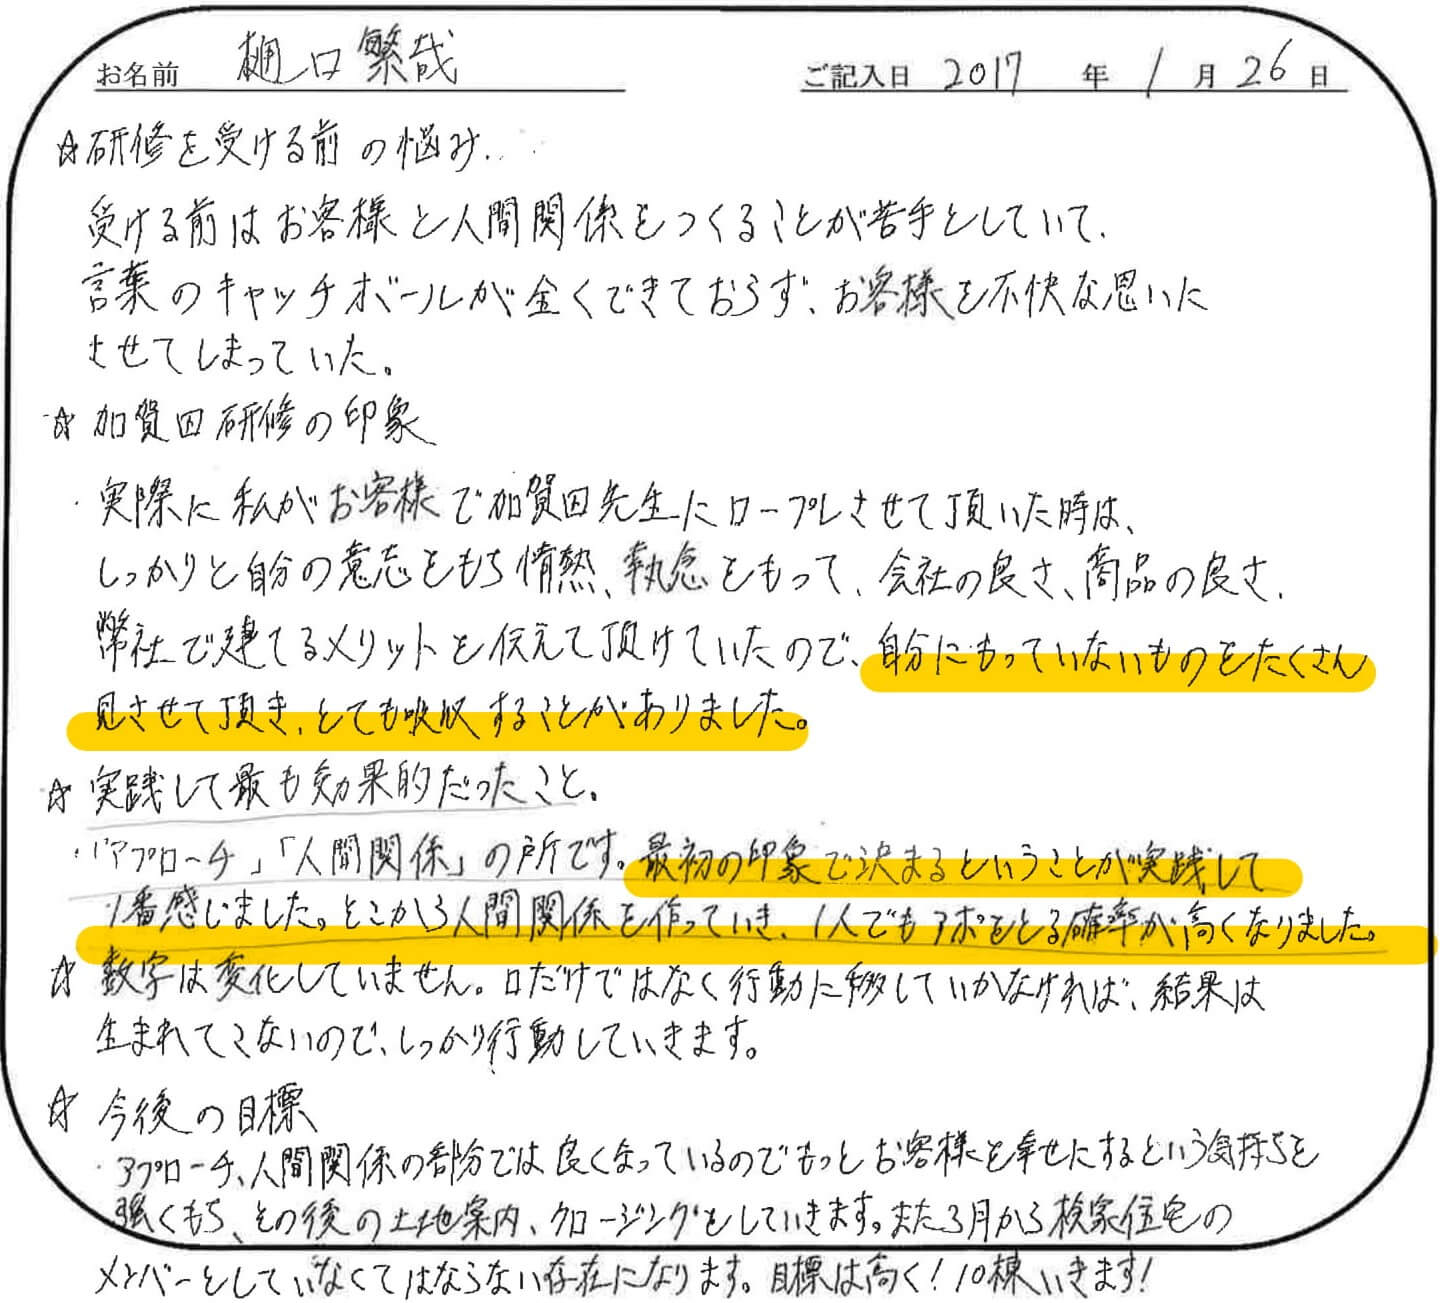 お名前 樋口繁哉 ご記入日 2017年1月26日
☆研修を受ける前の悩み..
受ける前はお客様と人間関係をつくることが苦手としていて、
言葉のキャッチボールが全くできておらず、お客様を不快な思いに
させてしまっていた。
☆加賀田研修の印象
・実際に私がお客様で加賀田先生にロープレさせて頂いた時は、
しっかりと自分の意志をもち情熱、執念をもって、会社の良さ、商品の良さ、
弊社で建てるメリットを伝えて頂けていたので、自分にもっていないものをたくさん
見させて頂き、とても吸収することがありました。
☆実践して最も効果的だったこと。
・「アプローチ」「人間関係」の所です。最初の印象で決まるということが実践して
1番感じました。そこから人間関係を作っていき、1人でもアポをとる確率が高くなりました。
☆数字は変化していません。口だけではなく行動に移していかなければ、結果は
生まれてこないので、しっかり行動していきます。
☆今後の目標
・アプローチ、人間関係の部分では良くなっているのでもっとお客様を幸せにするという気持ちを
強くもち、その後の土地案内、クロージングをしていきます。また3月から桧家住宅の
メンバーとしていなくてはならない存在になります。目標は高く!10棟いきます!